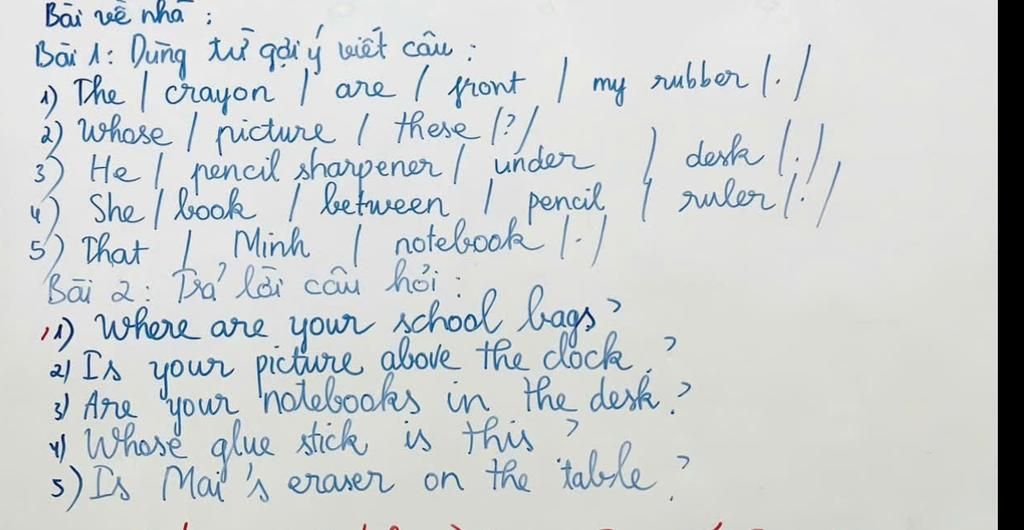 Bài về nhà :
Bài 1: Dùng từ gợi ý viết câu :
1) The / crayon / are / front / my rubber /./
2) Whose / picture / these /?/
3) He / pencil sharpener / under / desk /./
4) She / book / between / pencil / ruler /./
5) That / Minh / notebook /./
Bài 2 : Trả lời câu hỏi :
1) Where are your school bags?
2) Is your picture above the clock ?
3) Are your notebooks in the desk ?
4) Whose glue stick is this ?
5) Is Mai's eraser on the table ?